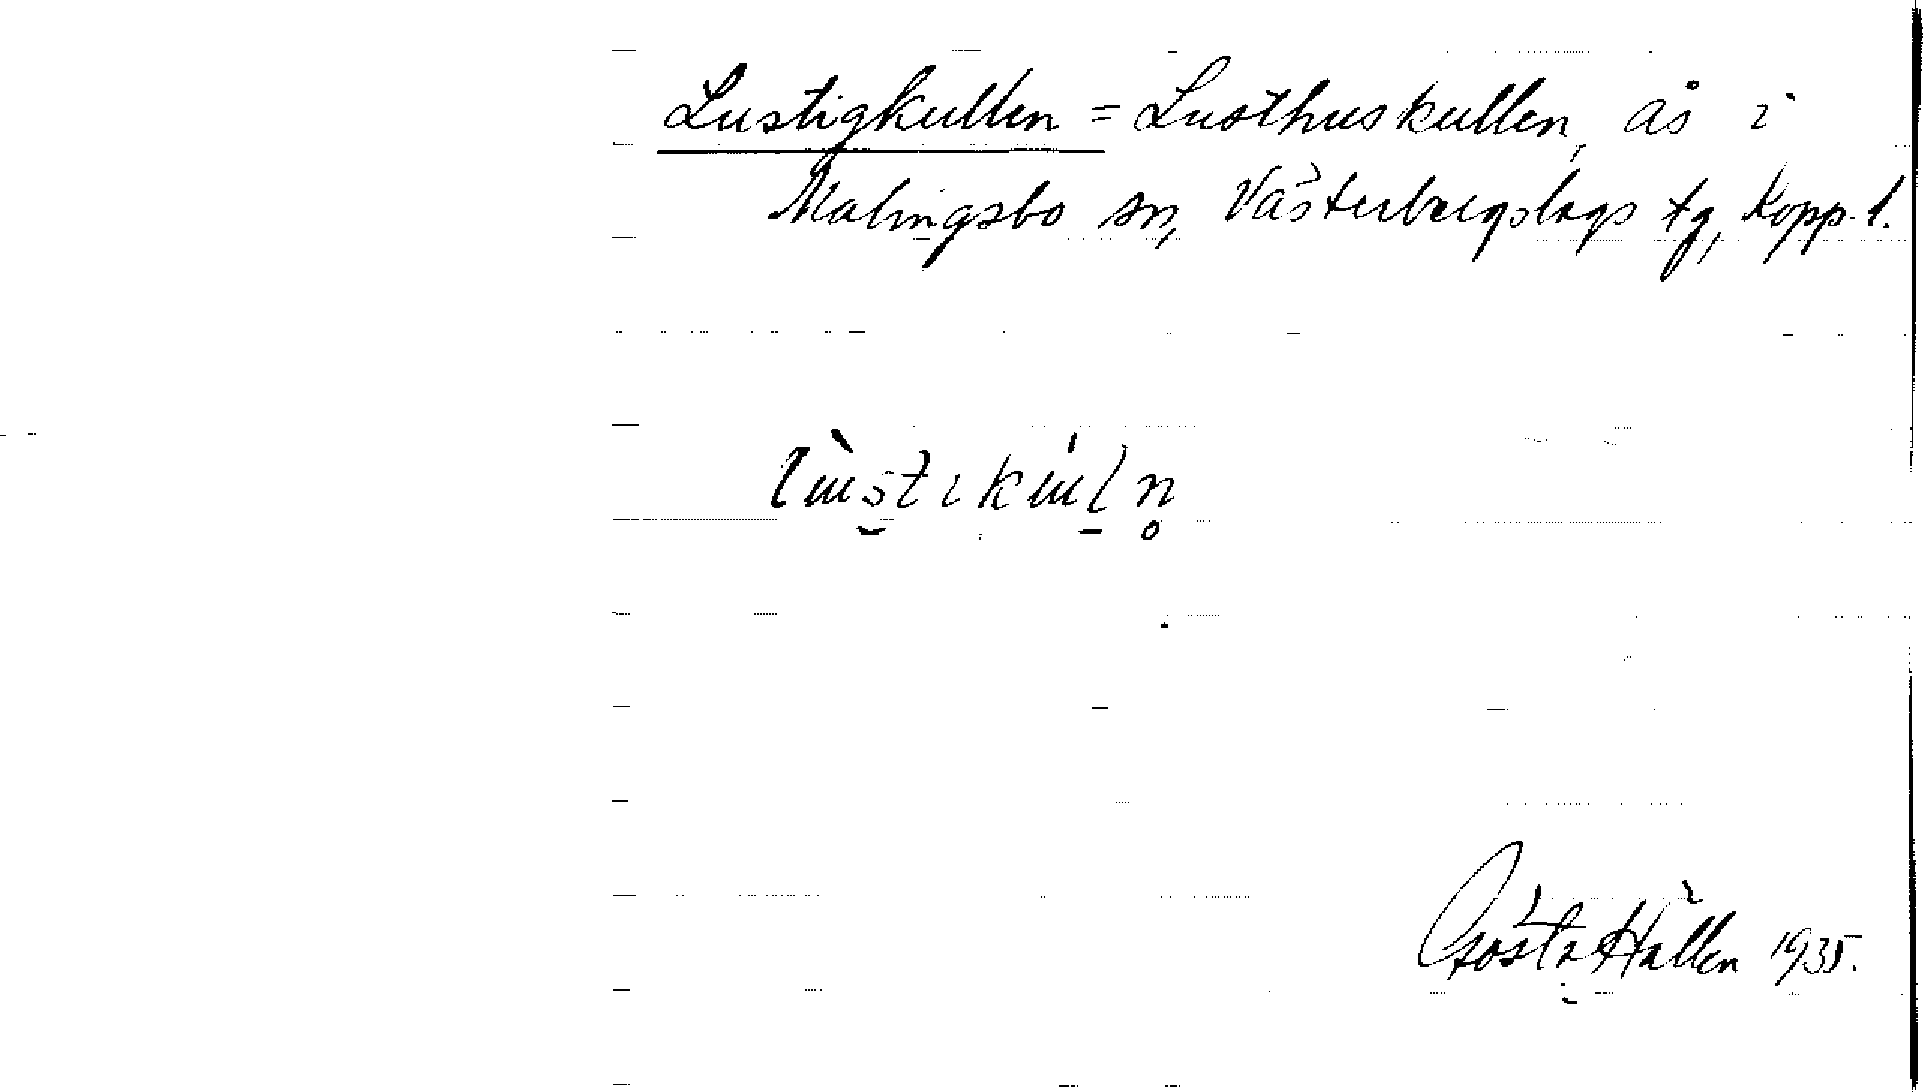 Lustigkullen = Lusthuskullen, ås i
Malingsbo sn, Västerbergslags tg, Kopp. l.
Gösta Hallen 1935.